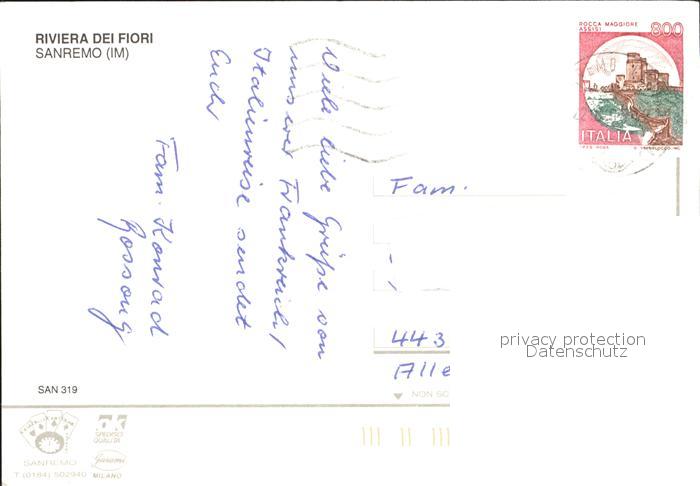 RIVIERA DEI FIORI
SANREMO (IM)
ROCCA MAGGIORE
ASSISI
800
ITALIA
Viele liebe Grüße von
unserer Frankreich/
Italienreise sendet
Euch
Fam. Konrad
Fam.
443
Alle
privacy protection
Datenschutz
NON SC
SAN 319
SANREMO
T (0184) 502940
SPEDISCI
QUALITÀ
Garami
MILANO